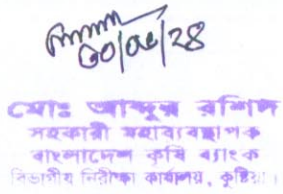 ৩০/০৬/২৪
মোঃ আব্দুর রশিদ
সহকারী মহাব্যবস্থাপক
বাংলাদেশ কৃষি ব্যাংক
বিভাগীয় নিরীক্ষা কার্যালয়, কুষ্টিয়া।